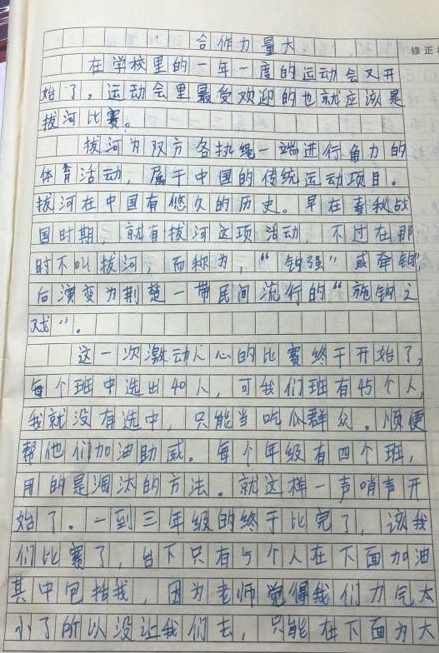 合作力量大
修正
在学校里的一年一度的运动会又开
始了，运动会里最受欢迎的也就应该是
拔河比赛。
拔河为双方各执绳一端进行角力的
体育活动，属于中国的传统运动项目。
拔河在中国有悠久的历史。早在春秋战
国时期，就有拔河这项活动，不过在那
时不叫拔河，而称为，“钩强”或牵钩
后演变为荆楚一带民间流行的“施钩之
戏”。
这一次激动人心的比赛终于开始了，
每个班中选出40人，可我们班有45个人
我就没有选中，只能当吃瓜群众。顺便
帮他们加油助威。每个年级有四个班，
用的是淘汰的方法。就这样一声哨声开
始了。一到三年级的终于比完了，该我
们比赛了，台下只有5个人在下面加油
其中包括我，因为老师觉得我们力气太
小了所以没让我们去，只能在下面为大